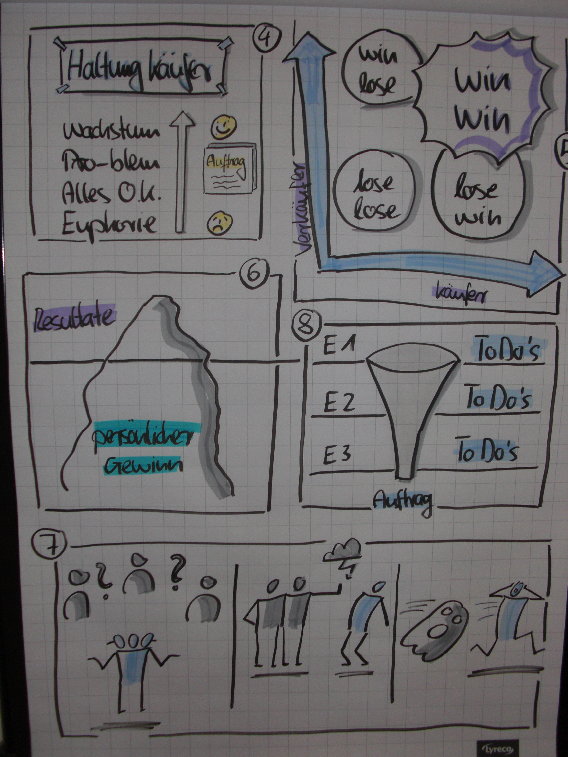 4
Haltung Käufer
Wachstum
Pro-blem
Alles O.K.
Euphorie
Auftrag
5
Verkäufer
Käufer
win
lose
Win
Win
lose
lose
lose
win
6
Resultate
persönlicher
Gewinn
8
E1
ToDo's
E2
To Do's
E3
To Do's
Auftrag
7
?
?
Lyreco